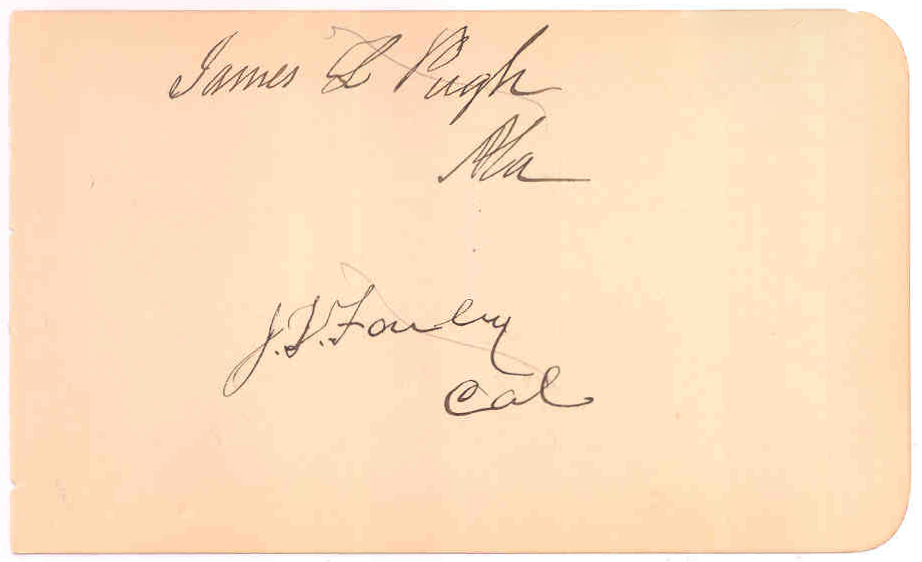 James L Pugh
Ala
J. T. Farley
Cal